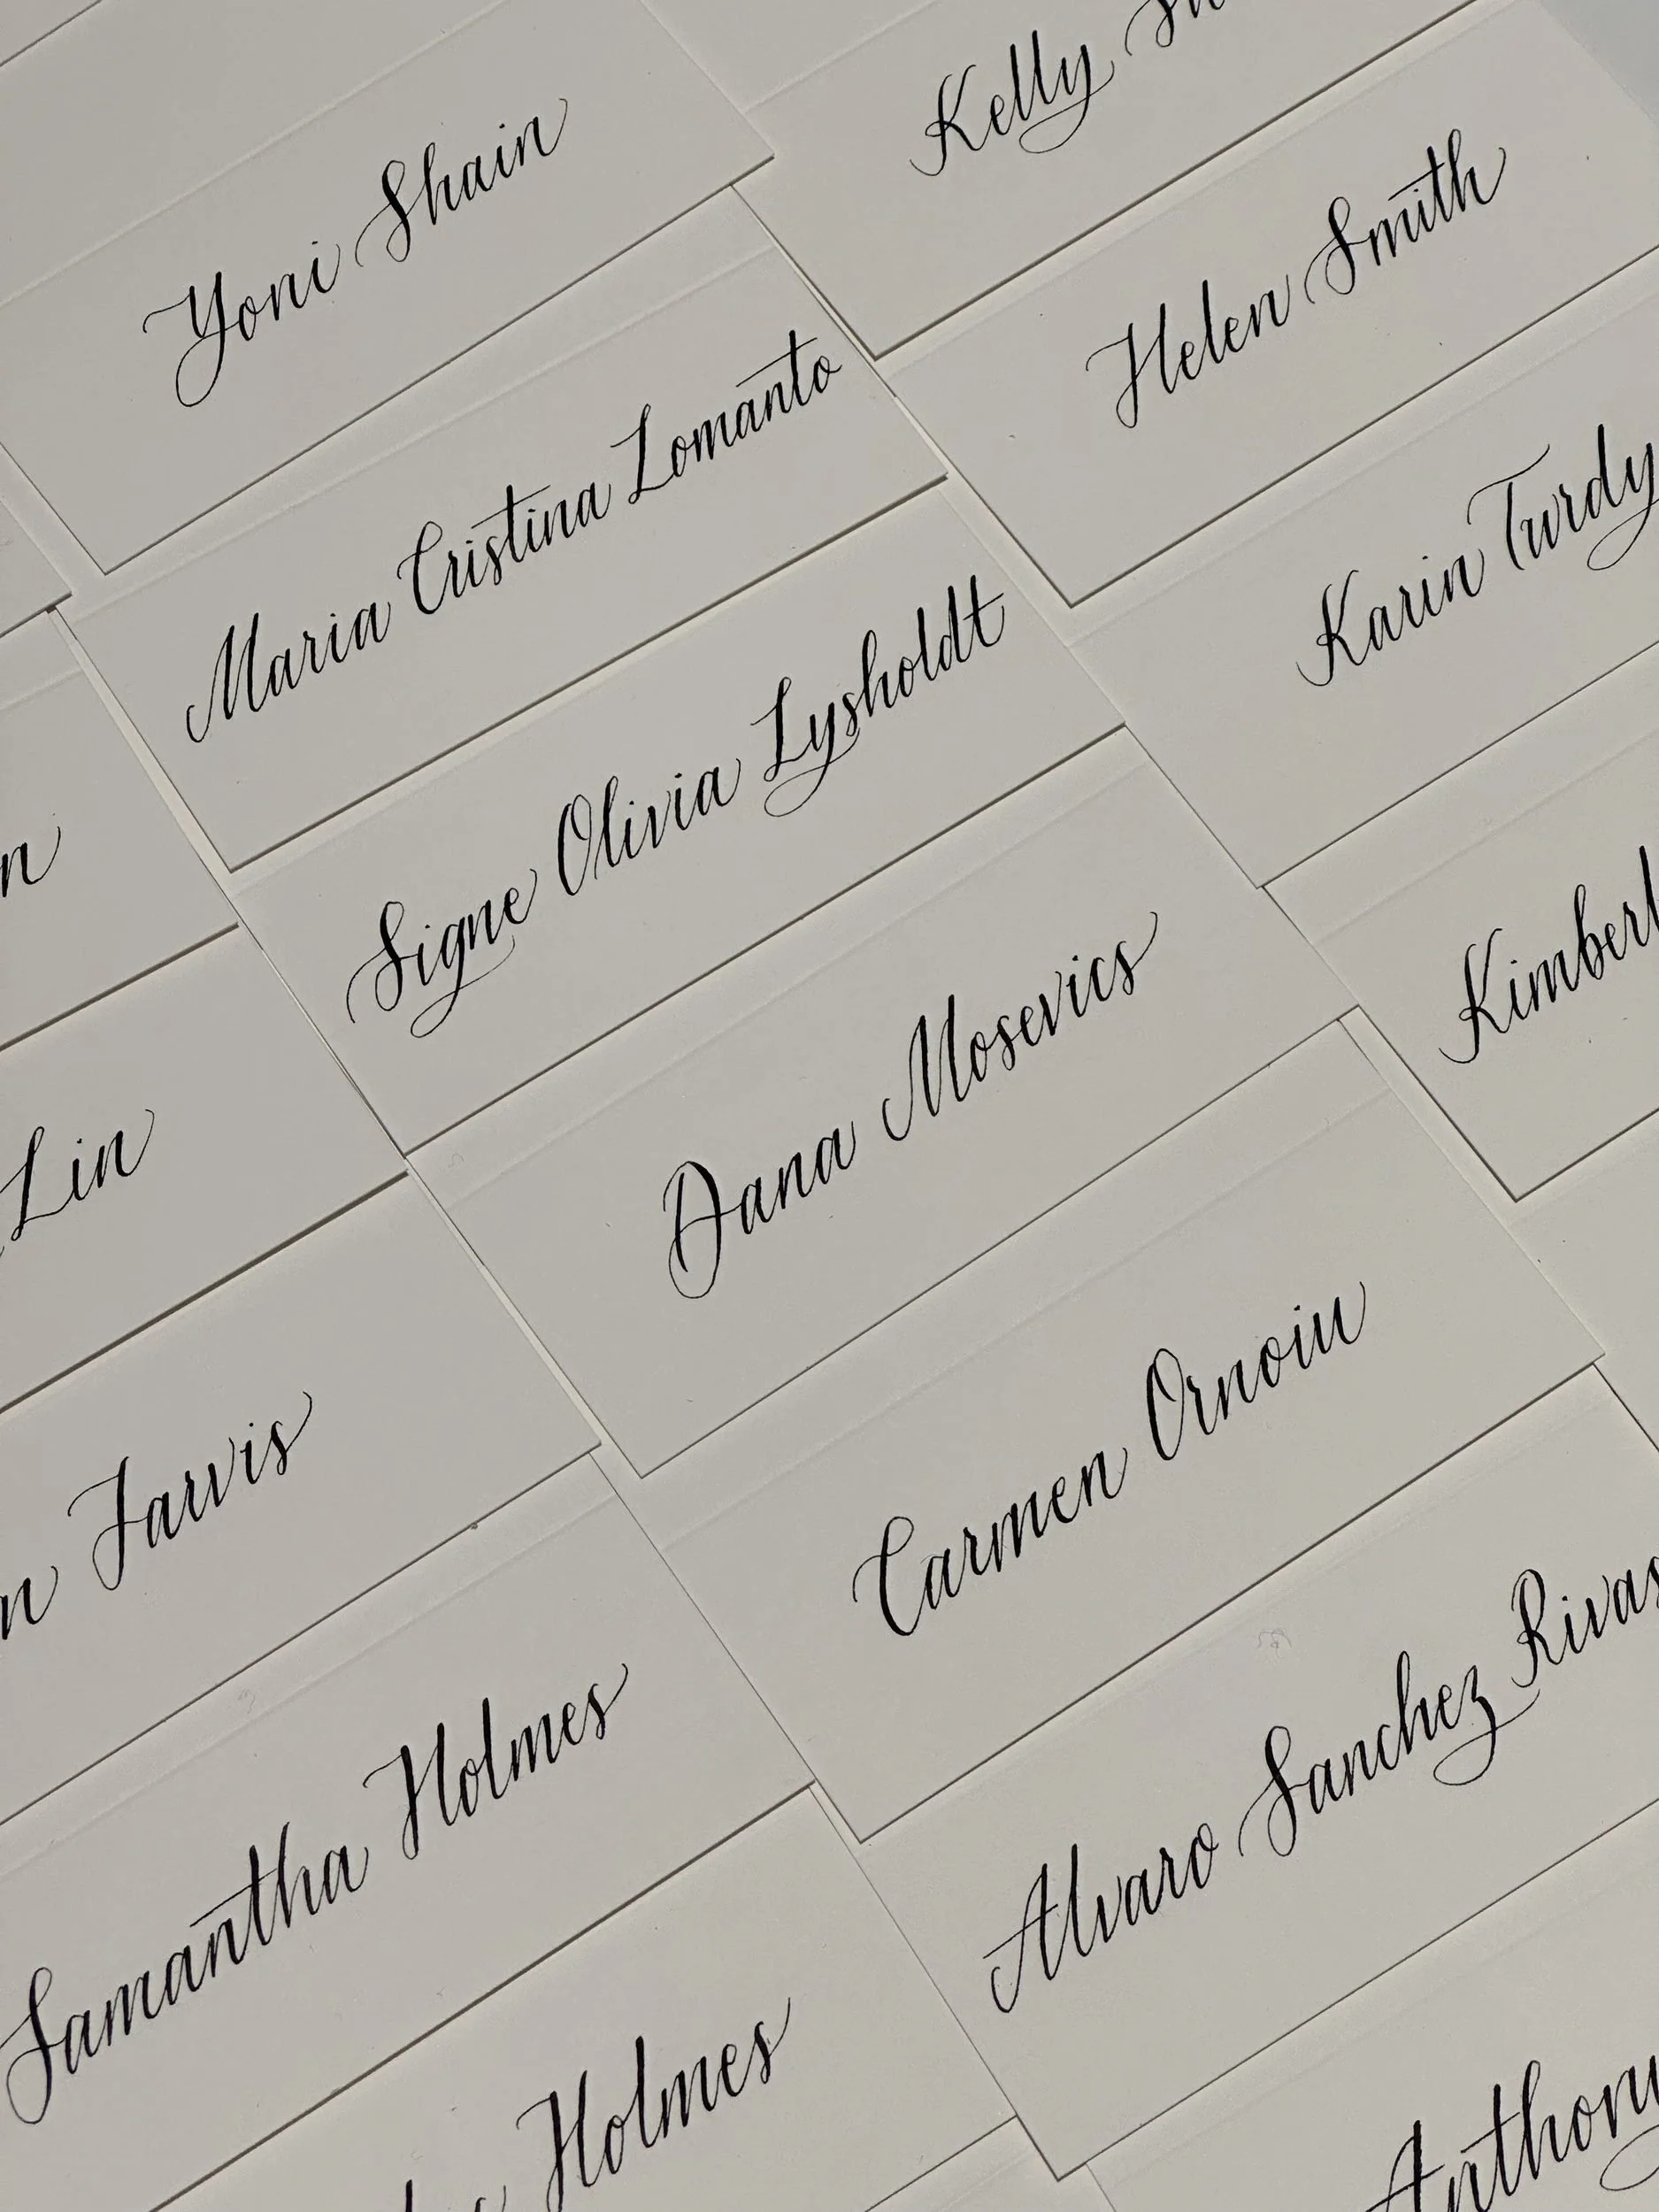 Yoni Shain
Maria Cristina Lomanto
Signe Olivia Lysholdt
Dana Mosevics
Carmen Ornoiu
Alvaro Sanchez Rivas
Anthony
Kelly
Helen Smith
Karin Turdy
Lin
Jarvis
Samantha Holmes
Holmes